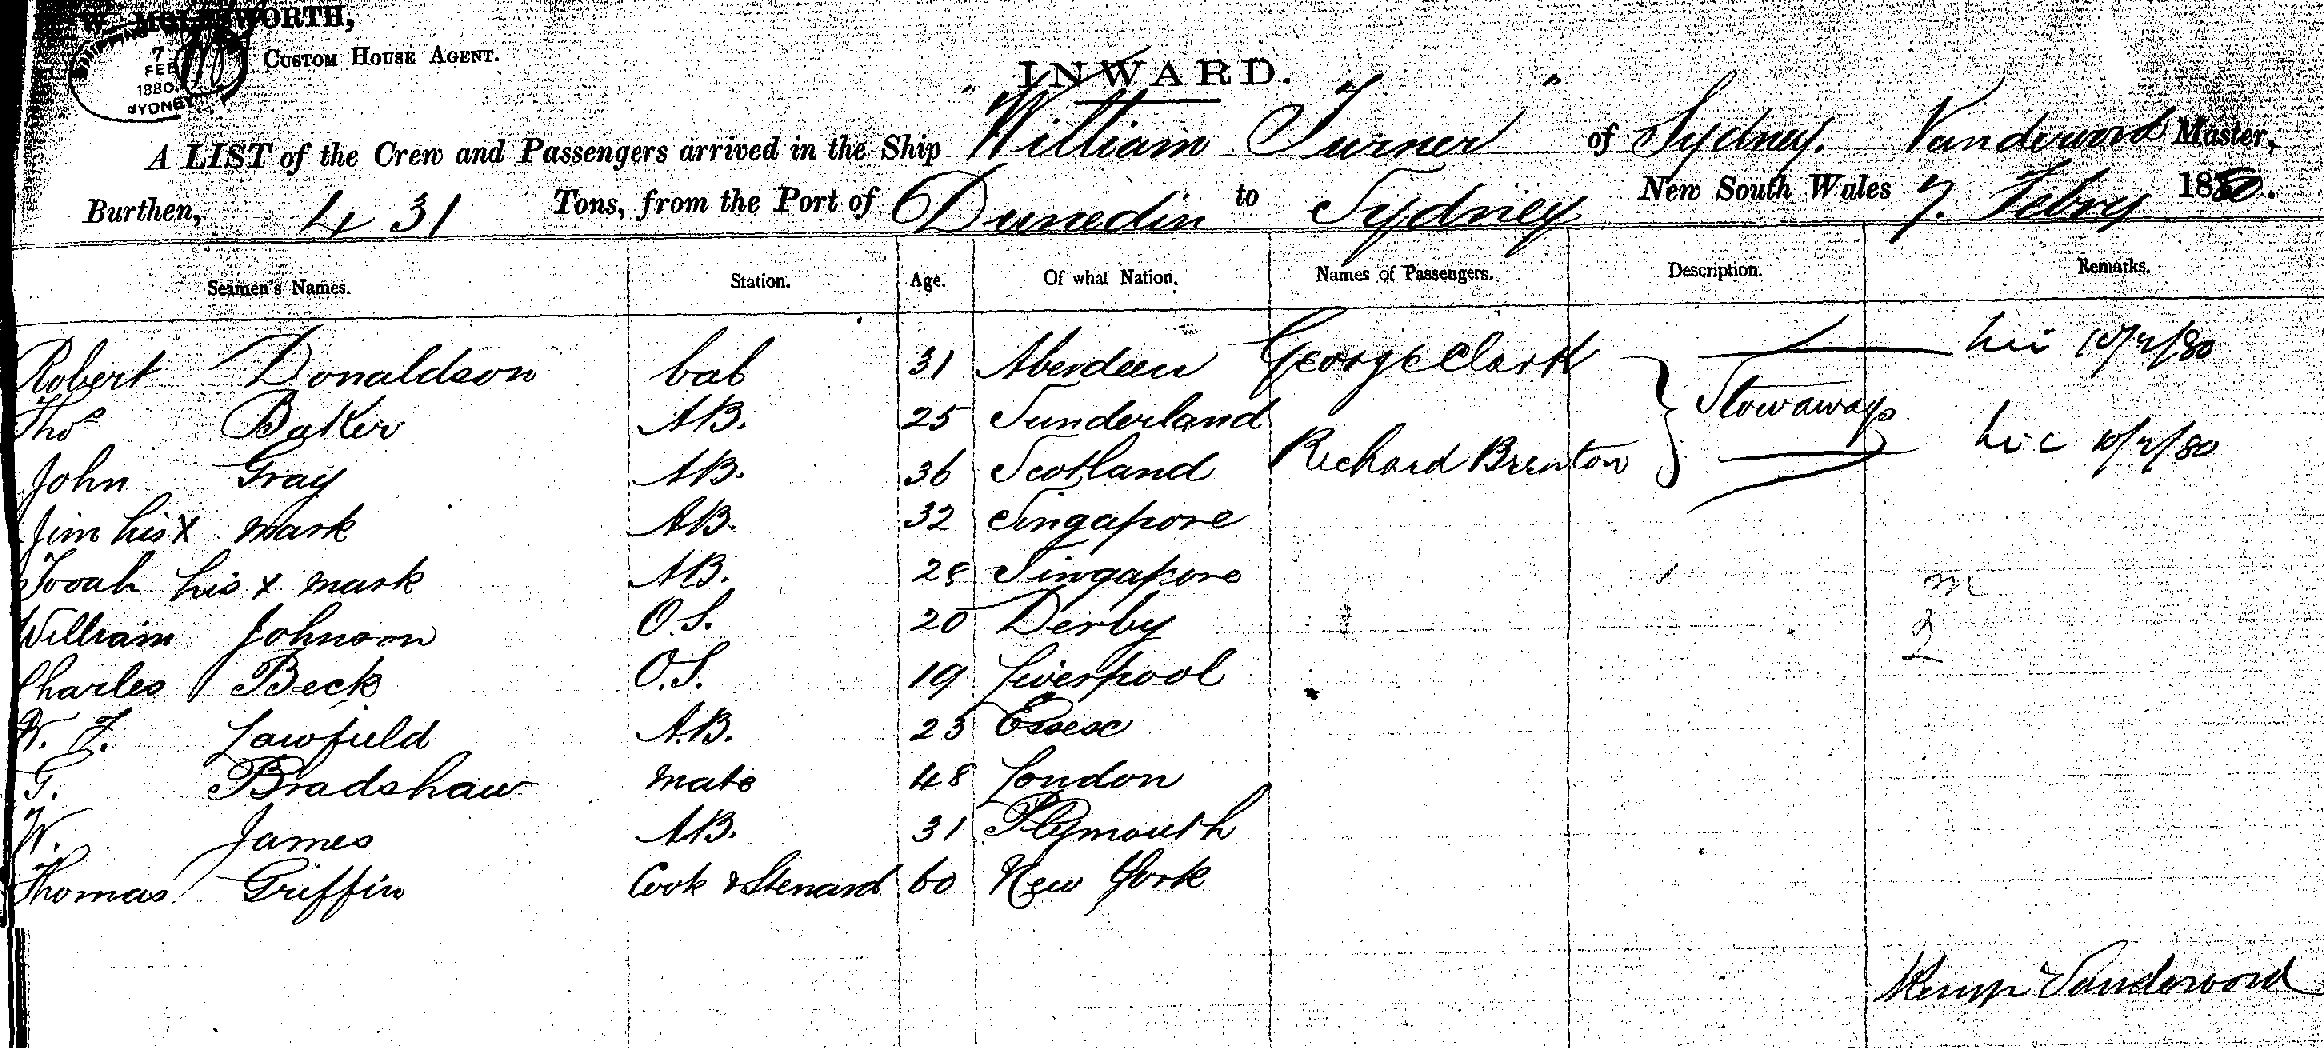 W. MOLESWORTH,
CUSTOM HOUSE AGENT.
7
FEB
1880
SYDNEY
INWARD.
A LIST of the Crew and Passengers arrived in the Ship "William Turner" of Sydney. Vanderwood Master,
Burthen, 431 Tons, from the Port of Dunedin to Sydney New South Wales 7. Febry 1880.
Seamen's Names. Station. Age. Of what Nation. Names of Passengers. Description. Remarks.
Robert Donaldson 31 Aberdeen George Clark
Thos Baker AB. 25 Sunderland Stowaways
John Gray AB. 36 Scotland Richard Brenton
Jim his X mark AB. 32 Singapore
his x mark AB. Singapore
William Johnson O.S. 20 Derby
Charles Beck O.S. 19 Liverpool
Lawfield A.B. 23 Essex
Bradshaw Mate 48 London
W. James AB. 31 Plymouth
Thomas Griffin Cook & Steward 60 New York
Vanderwoord